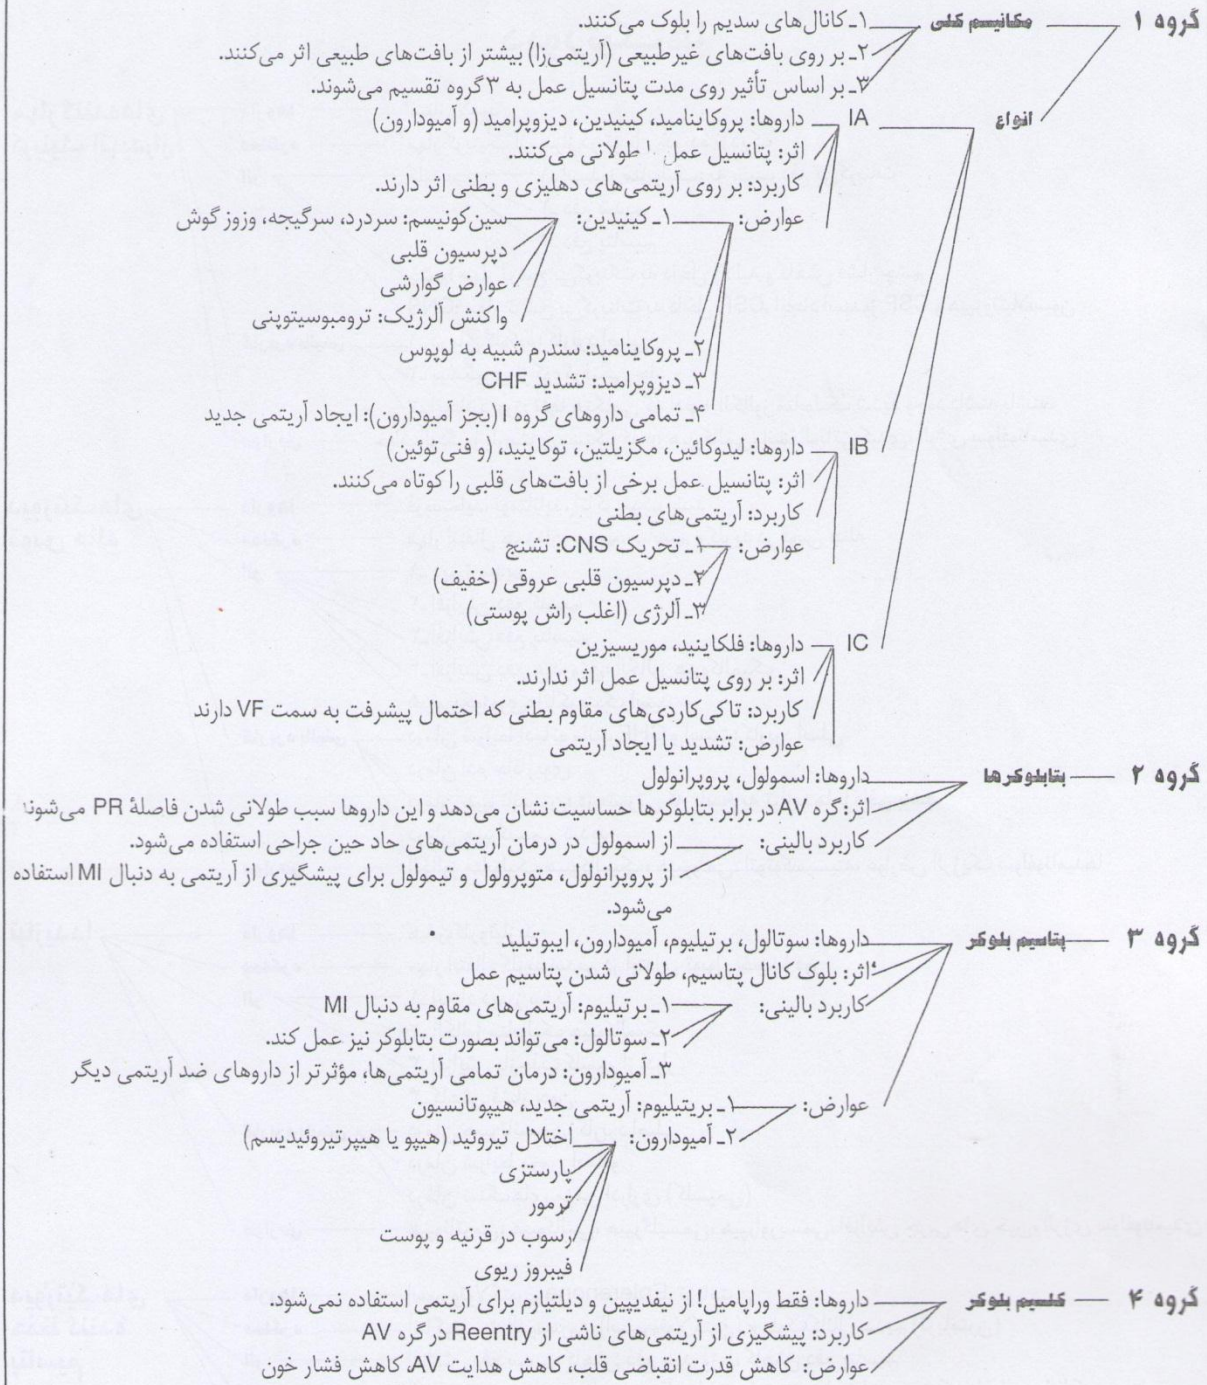 گروه ۱ مکانیسم کلی ۱ـ کانال‌های سدیم را بلوک می‌کنند.
۲ـ بر روی بافت‌های غیرطبیعی (آریتمی‌زا) بیشتر از بافت‌های طبیعی اثر می‌کنند.
۳ـ بر اساس تأثیر روی مدت پتانسیل عمل به ۳ گروه تقسیم می‌شوند.
انواع IA داروها: پروکاینامید، کینیدین، دیزوپرامید (و آمیودارون)
اثر: پتانسیل عمل طولانی می‌کنند.
کاربرد: بر روی آریتمی‌های دهلیزی و بطنی اثر دارند.
عوارض: ۱ـ کینیدین: سین‌کونیسم: سردرد، سرگیجه، وزوز گوش
دپرسیون قلبی
عوارض گوارشی
واکنش آلرژیک: ترومبوسیتوپنی
۲ـ پروکاینامید: سندرم شبیه به لوپوس
۳ـ دیزوپرامید: تشدید CHF
۴ـ تمامی داروهای گروه I (بجز آمیودارون): ایجاد آریتمی جدید
IB داروها: لیدوکائین، مگزیلتین، توکاینید، (و فنی‌توئین)
اثر: پتانسیل عمل برخی از بافت‌های قلبی را کوتاه می‌کنند.
کاربرد: آریتمی‌های بطنی
عوارض: ۱ـ تحریک CNS: تشنج
۲ـ دپرسیون قلبی عروقی (خفیف)
۳ـ آلرژی (اغلب راش پوستی)
IC داروها: فلکاینید، موریسیزین
اثر: بر روی پتانسیل عمل اثر ندارند.
کاربرد: تاکی‌کاردی‌های مقاوم بطنی که احتمال پیشرفت به سمت VF دارند
عوارض: تشدید یا ایجاد آریتمی
گروه ۲ بتابلوکرها داروها: اسمولول، پروپرانولول
اثر: گره AV در برابر بتابلوکرها حساسیت نشان می‌دهد و این داروها سبب طولانی شدن فاصلهٔ PR می‌شوند
کاربرد بالینی: از اسمولول در درمان آریتمی‌های حاد حین جراحی استفاده می‌شود.
از پروپرانولول، متوپرولول و تیمولول برای پیشگیری از آریتمی به دنبال MI استفاده
می‌شود.
گروه ۳ پتاسیم بلوکر داروها: سوتالول، برتیلیوم، آمیودارون، ایبوتیلید
اثر: بلوک کانال پتاسیم، طولانی شدن پتاسیم عمل
کاربرد بالینی: ۱ـ برتیلیوم: آریتمی‌های مقاوم به دنبال MI
۲ـ سوتالول: می‌تواند بصورت بتابلوکر نیز عمل کند.
۳ـ آمیودارون: درمان تمامی آریتمی‌ها، مؤثرتر از داروهای ضد آریتمی دیگر
عوارض: ۱ـ بریتیلیوم: آریتمی جدید، هیپوتانسیون
۲ـ آمیودارون: اختلال تیروئید (هیپو یا هیپرتیروئیدیسم)
پارستزی
ترمور
رسوب در قرنیه و پوست
فیبروز ریوی
گروه ۴ کلسیم بلوکر داروها: فقط وراپامیل! از نیفدیپین و دیلتیازم برای آریتمی استفاده نمی‌شود.
کاربرد: پیشگیری از آریتمی‌های ناشی از Reentry در گره AV
عوارض: کاهش قدرت انقباضی قلب، کاهش هدایت AV، کاهش فشار خون